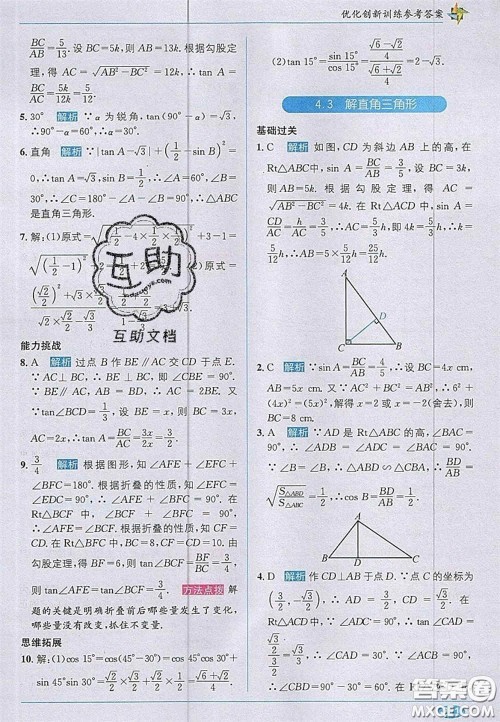 优化创新训练参考答案
BC/AB=5/13. 设 BC=5k，则 AB=13k. 根据勾股定
理，得 AC=√(AB²-BC²)=12k，∴tan A=
BC/AC=5k/12k=5/12.
5. 30° 解析 ∵α为锐角，tan(90°-α)=√3，
∴90°-α=60°，∴α=30°.
6. 直角 解析 ∵|tan A-√3|+(1/2-sin B)²=
0，∴tan A=√3，sin B=1/2，∴∠A=60°，∠B=
30°，∴∠C=180°-60°-30°=90°，∴△ABC
是直角三角形.
7. 解：(1)原式=
+3-1=
(2)原式=
能力挑战
8. A 解析 过点 B 作 BE∥AC 交 CD 于点 E.
∵AC⊥BC，∴BE⊥BC，即∠CBE=90°.
∵BE∥AC，AB=BD，∴AC=2BE. 又
∵tan∠BCD=1/3，设 BE=x，则 BC=3x，
AC=2x，∴tan A=BC/AC=3x/2x=3/2.
9. 3/4 解析 根据图形，知∠AFE+∠EFC+
∠BFC=180°. 根据折叠的性质，知∠EFC=
∠EDC=90°，∴∠AFE+∠BFC=90°. 在
Rt△BCF 中，∠BCF+∠BFC=90°，
∴∠AFE=∠BCF. 根据折叠的性质，知 CF=
CD. 在 Rt△BCF 中，BC=8，CF=CD=10. 由
勾股定理，得 BF=6，则 tan∠BCF=BF/BC=3/4，
则 tan∠AFE=tan∠BCF=3/4. 方法点拨 解
题的关键是明确折叠前后哪些量发生了变化，
哪些量没有改变，抓住不变量.
思维拓展
10. 解：(1)cos 15°=cos(45°-30°)=cos 45°cos 30°+
sin 45°sin 30°=√2/2×√3/2+√2/2×1/2=(√6+√2)/4.
(2)tan 15°=sin 15°/cos 15°=((√6-√2)/4)/((√6+√2)/4)=2-√3.
4.3 解直角三角形
基础过关
1. C 解析 如图，CD 为斜边 AB 上的高，在
Rt△ABC中，sin A=BC/AB=3/5，设 BC=3k，
则 AB=5k，根据勾股定理，得 AC=
√(AB²-BC²)=4k. 在 Rt△ACD 中，sin A=
CD/AC=h/AC=3/5，∴AC=5/3h，即 4k=5/3h，∴k=
5/12h，∴AB=5k=5×5/12h=25/12h.
A
D
C
B
2. C 解析 ∵sin A=BC/AB=4/5，∴设 BC=4x cm，
AB=5x cm. 又∵AC²+BC²=AB²，∴6²+
(4x)²=(5x)²，解得 x=2 或 x=-2(舍去)，则
BC=8 cm.
3. A 解析 ∵AD 是 Rt△ABC 的高，∠BAC=
90°，∴∠B=∠DAC，∴cos B=cos∠DAC.
∵△ABD∽△CAD，∴cos B=BD/AB=
，∴cos B=
A
B
D
C
4. D 解析 作 CD⊥AB 于点 D. ∵点 C 的坐标为
，∴AD=
，CD=
. 在 Rt△ACD 中，
，∴∠CAD=30°. ∵∠ACB=
互助
互助文档
答案圈
MXQE.COM